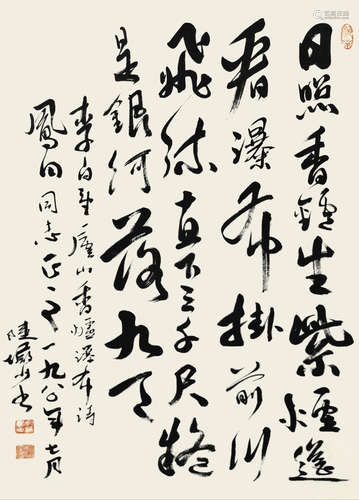 日照香鑪生紫煙遙
看瀑布掛前川
飛流直下三千尺疑
是銀河落九天
李白望廬山香爐瀑布詩
鳳同志正之一九八〇年七月
陸儼少書